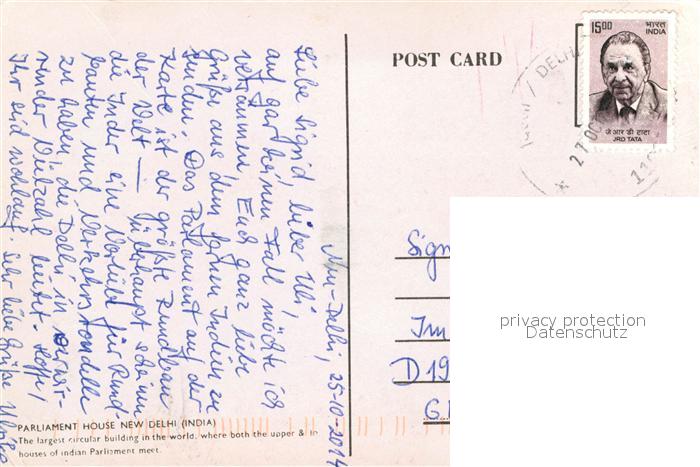 POST CARD
15.00
भारत
INDIA
जे आर डी टाटा
JRD TATA
DELHI
27 OC
Neu-Delhi, 25-10-2014
Liebe Sigrid, lieber Uli!
auf gar keinen Fall möchte ich
versäumen, Euch ganz liebe
Grüße aus dem fernen Indien zu
senden. Das Parlament auf der
Karte ist der größte Rundbau
der Welt — überhaupt scheinen
die Inder eine Vorliebe für Rund-
bauten und Verkehrskreisel
zu haben, die Delhi in verwir-
render Vielzahl bietet. Hoffe,
Ihr seid wohlauf. Sehr liebe Grüße
Sign
Im
D 19
privacy protection
Datenschutz
PARLIAMENT HOUSE NEW DELHI (INDIA)
The largest circular building in the world, where both the upper & lo
houses of indian Parliament meet.